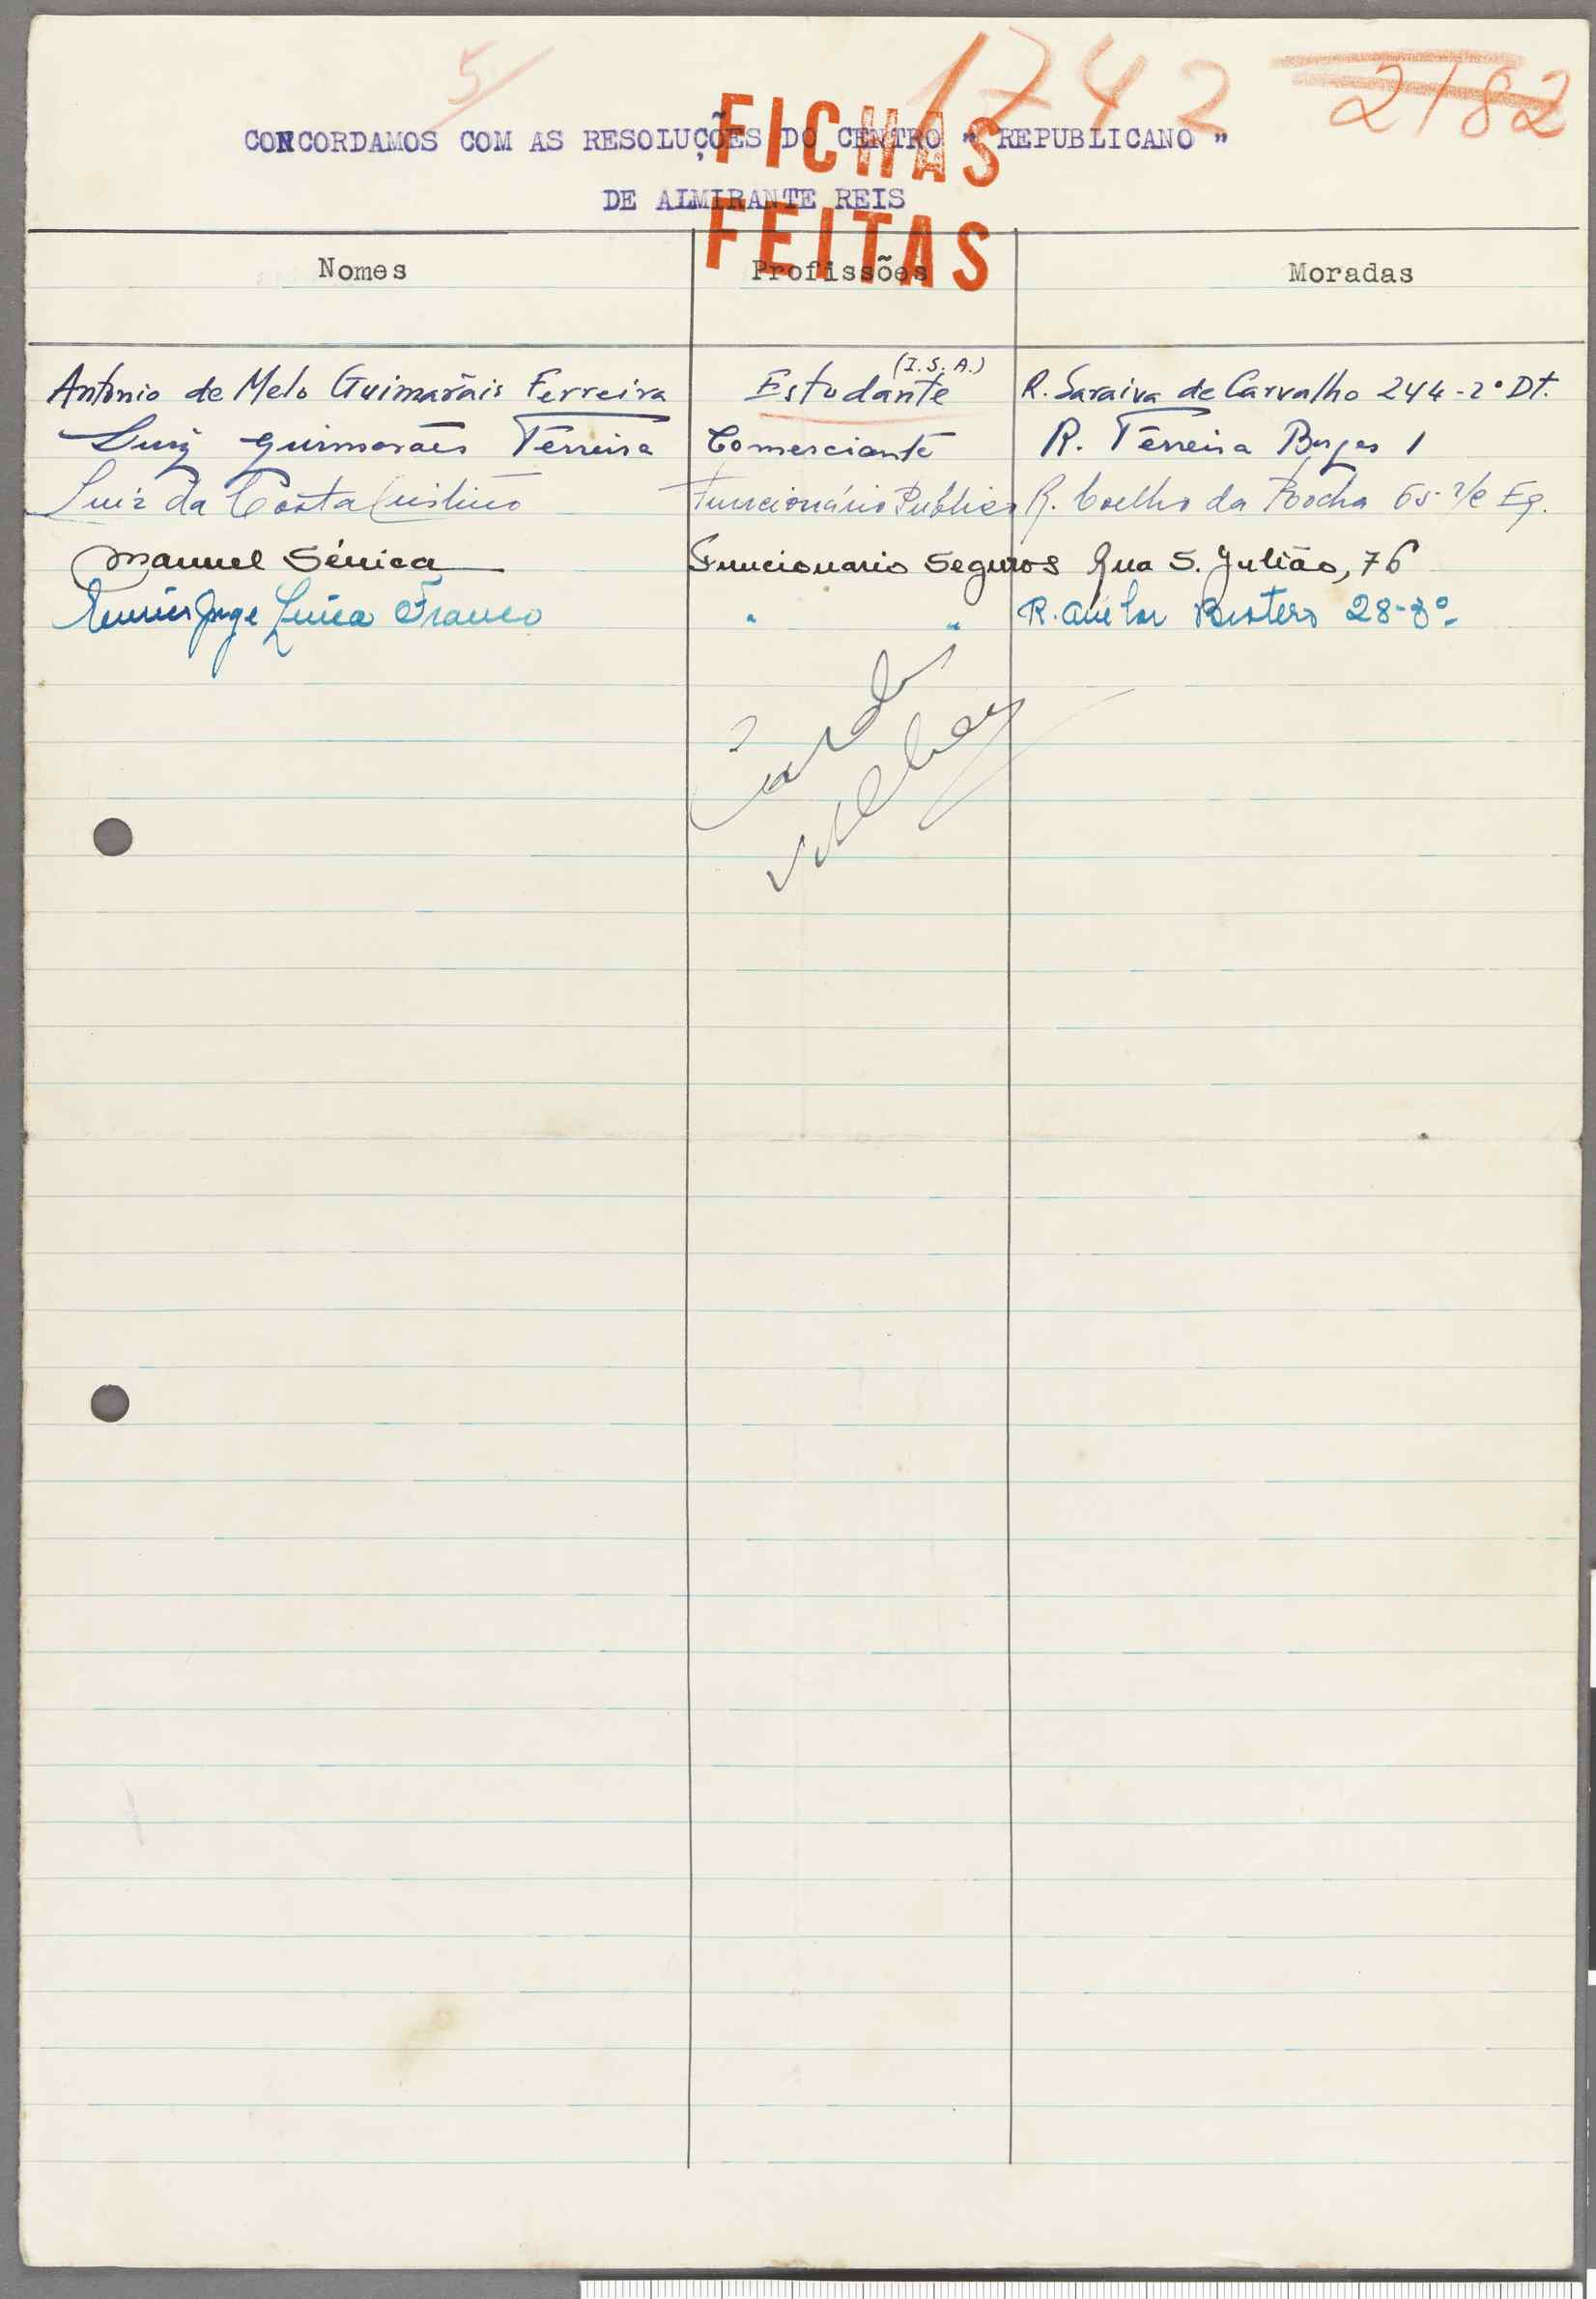 5
1742 2182
FICHAS
CONCORDAMOS COM AS RESOLUÇÕES DO CENTRO " REPUBLICANO "
DE ALMIRANTE REIS
FEITAS
Nomes Profissões Moradas
Antonio de Melo Guimarãis Ferreira Estudante (I.S.A.) R. Saraiva de Carvalho 244-2º Dt.
Luiz Guimarães Ferreira Comerciante R. Ferreira Borges 1
Luiz da Costa Funcionário Público R. Coelho da Rocha 65 r/c Eq.
Manuel Sénica Funcionario Seguros Rua S. Julião, 76
Jorge Franco " " R. 28-8º